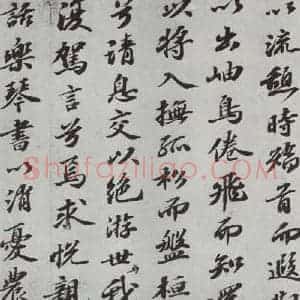 以流憩時矯首而遐
以出岫鳥倦飛而知還
以將入撫孤松而盤桓
兮請息交以絕游世我
復駕言兮焉求悅親
話樂琴書以消憂農
Shufaziliao.com